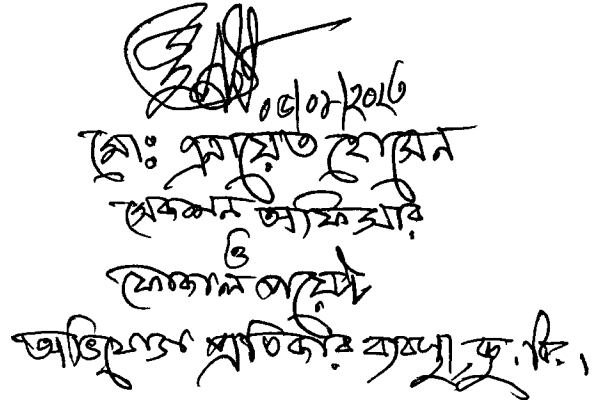 ০৫/০৮/২০২৩
মোঃ এনায়েত হোসেন
সেকশন অফিসার
ও
ফোকাল পয়েন্ট
অভিযোগ প্রতিকার ব্যবস্থা